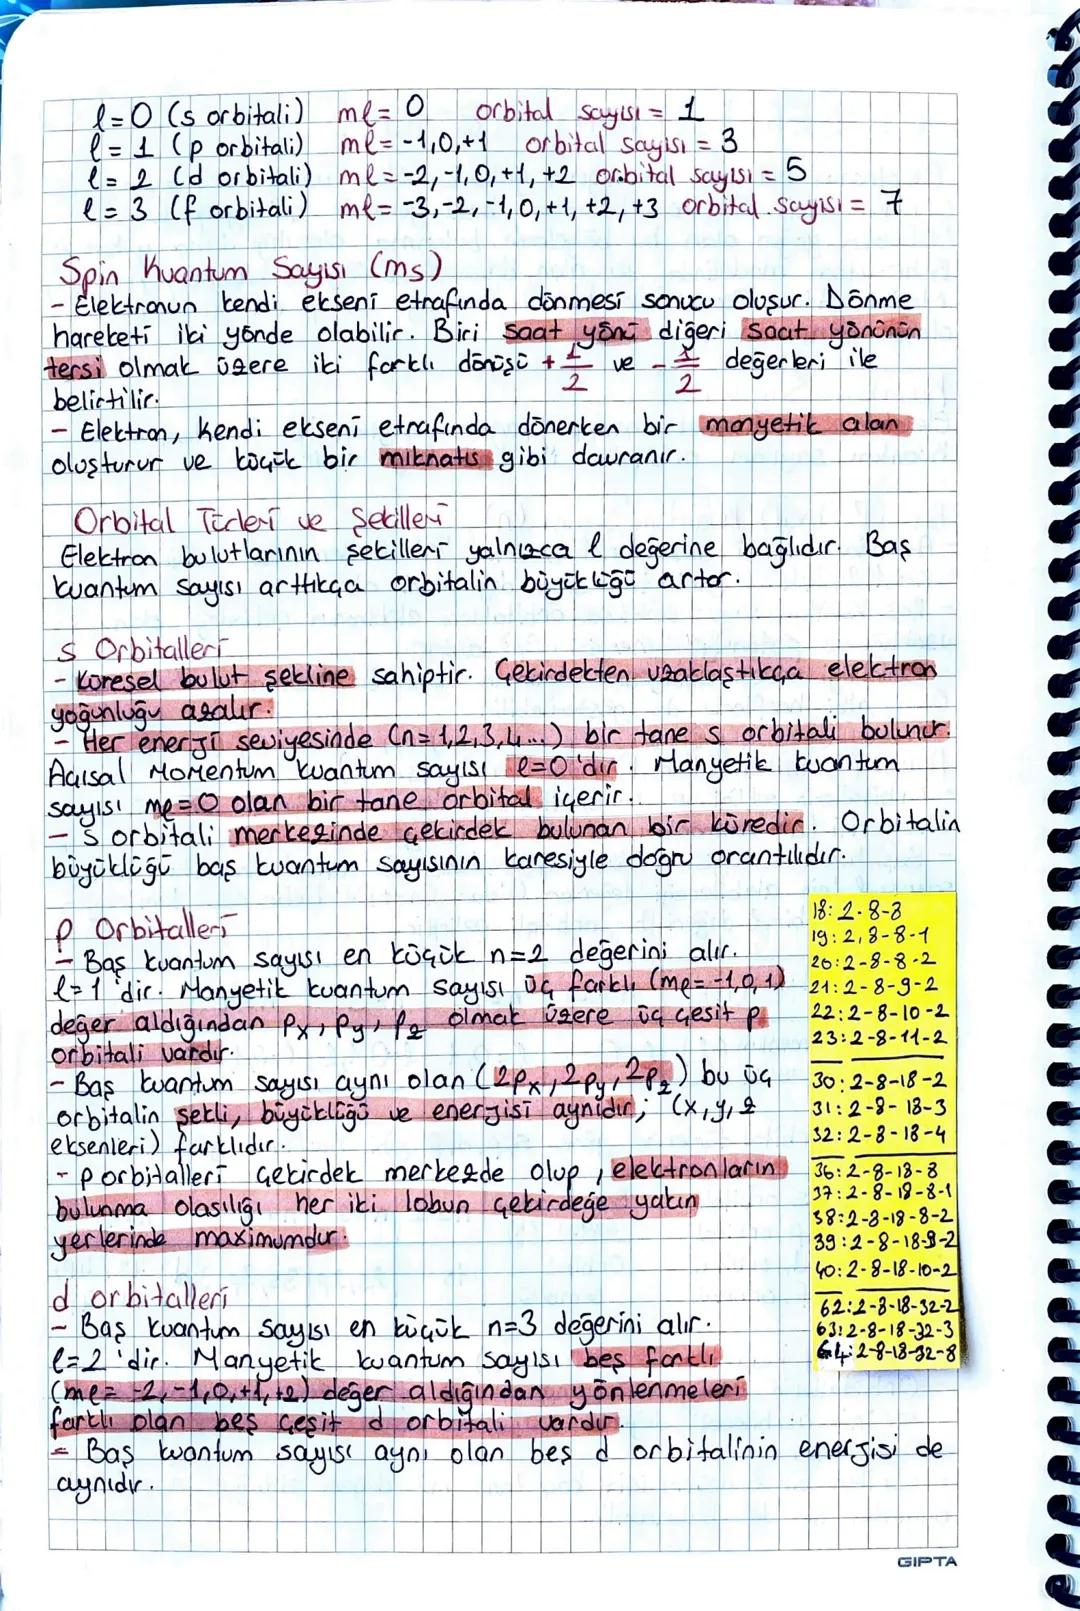 l=0 (s orbitali) ml=0 orbital sayısı = 1
l=1 (p orbitali) ml=-1,0,+1 orbital sayısı = 3
l=2 (d orbitali) ml=-2,-1,0,+1,+2 orbital sayısı = 5
l=3 (f orbitali) ml=-3,-2,-1,0,+1,+2,+3 orbital sayısı = 7
Spin Kuantum Sayısı (ms)
- Elektronun kendi ekseni etrafında dönmesi sonucu oluşur. Dönme
hareketi iki yönde olabilir. Biri saat yönü diğeri saat yönünün
tersi olmak üzere iki farklı dönüşü +1/2 ve -1/2 değerleri ile
belirtilir.
- Elektron, kendi ekseni etrafında dönerken bir manyetik alan
oluşturur ve küçük bir mıknatıs gibi davranır.
Orbital Türleri ve Şekilleri
Elektron bulutlarının şekilleri yalnızca l değerine bağlıdır. Baş
kuantum sayısı arttıkça orbitalin büyüklüğü artar.
s Orbitalleri
- Küresel bulut şekline sahiptir. Çekirdekten uzaklaştıkça elektron
yoğunluğu azalır.
- Her enerji seviyesinde (n=1,2,3,4...) bir tane s orbitali bulunur.
Açısal Momentum kuantum sayısı l=0'dır. Manyetik kuantum
sayısı ml=0 olan bir tane orbital içerir.
- s orbitali merkezinde çekirdek bulunan bir küredir. Orbitalin
büyüklüğü baş kuantum sayısının karesiyle doğru orantılıdır.
p Orbitalleri
- Baş kuantum sayısı en küçük n=2 değerini alır.
l=1'dir. Manyetik kuantum sayısı üç farklı (ml=-1,0,1)
değer aldığından px, py, pz olmak üzere üç çeşit p
orbitali vardır.
- Baş kuantum sayısı aynı olan (2px, 2py, 2pz) bu üç
orbitalin şekli, büyüklüğü ve enerjisi aynıdır; (x,y,z
eksenleri) farklıdır.
- p orbitalleri çekirdek merkezde olup, elektronların
bulunma olasılığı her iki lobun çekirdeğe yakın
yerlerinde maximumdur.
d orbitalleri
- Baş kuantum sayısı en küçük n=3 değerini alır.
l=2'dir. Manyetik kuantum sayısı beş farklı
(ml=-2,-1,0,+1,+2) değer aldığından yönlenmeleri
farklı olan beş çeşit d orbitali vardır.
- Baş kuantum sayısı aynı olan beş d orbitalinin enerjisi de
aynıdır.
18: 2-8-8
19: 2,8-8-1
20: 2-8-8-2
21: 2-8-9-2
22: 2-8-10-2
23: 2-8-11-2
30: 2-8-18-2
31: 2-8-18-3
32: 2-8-18-4
36: 2-8-18-8
37: 2-8-18-8-1
38: 2-8-18-8-2
39: 2-8-18-9-2
40: 2-8-18-10-2
62: 2-8-18-32-2
63: 2-8-18-32-3
64: 2-8-18-32-8
GIPTA